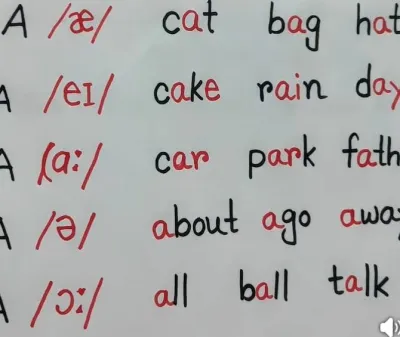 A /æ/ cat bag hat
A /eɪ/ cake rain day
A /ɑ:/ car park fath
A /ə/ about ago away
A /ɔ:/ all ball talk